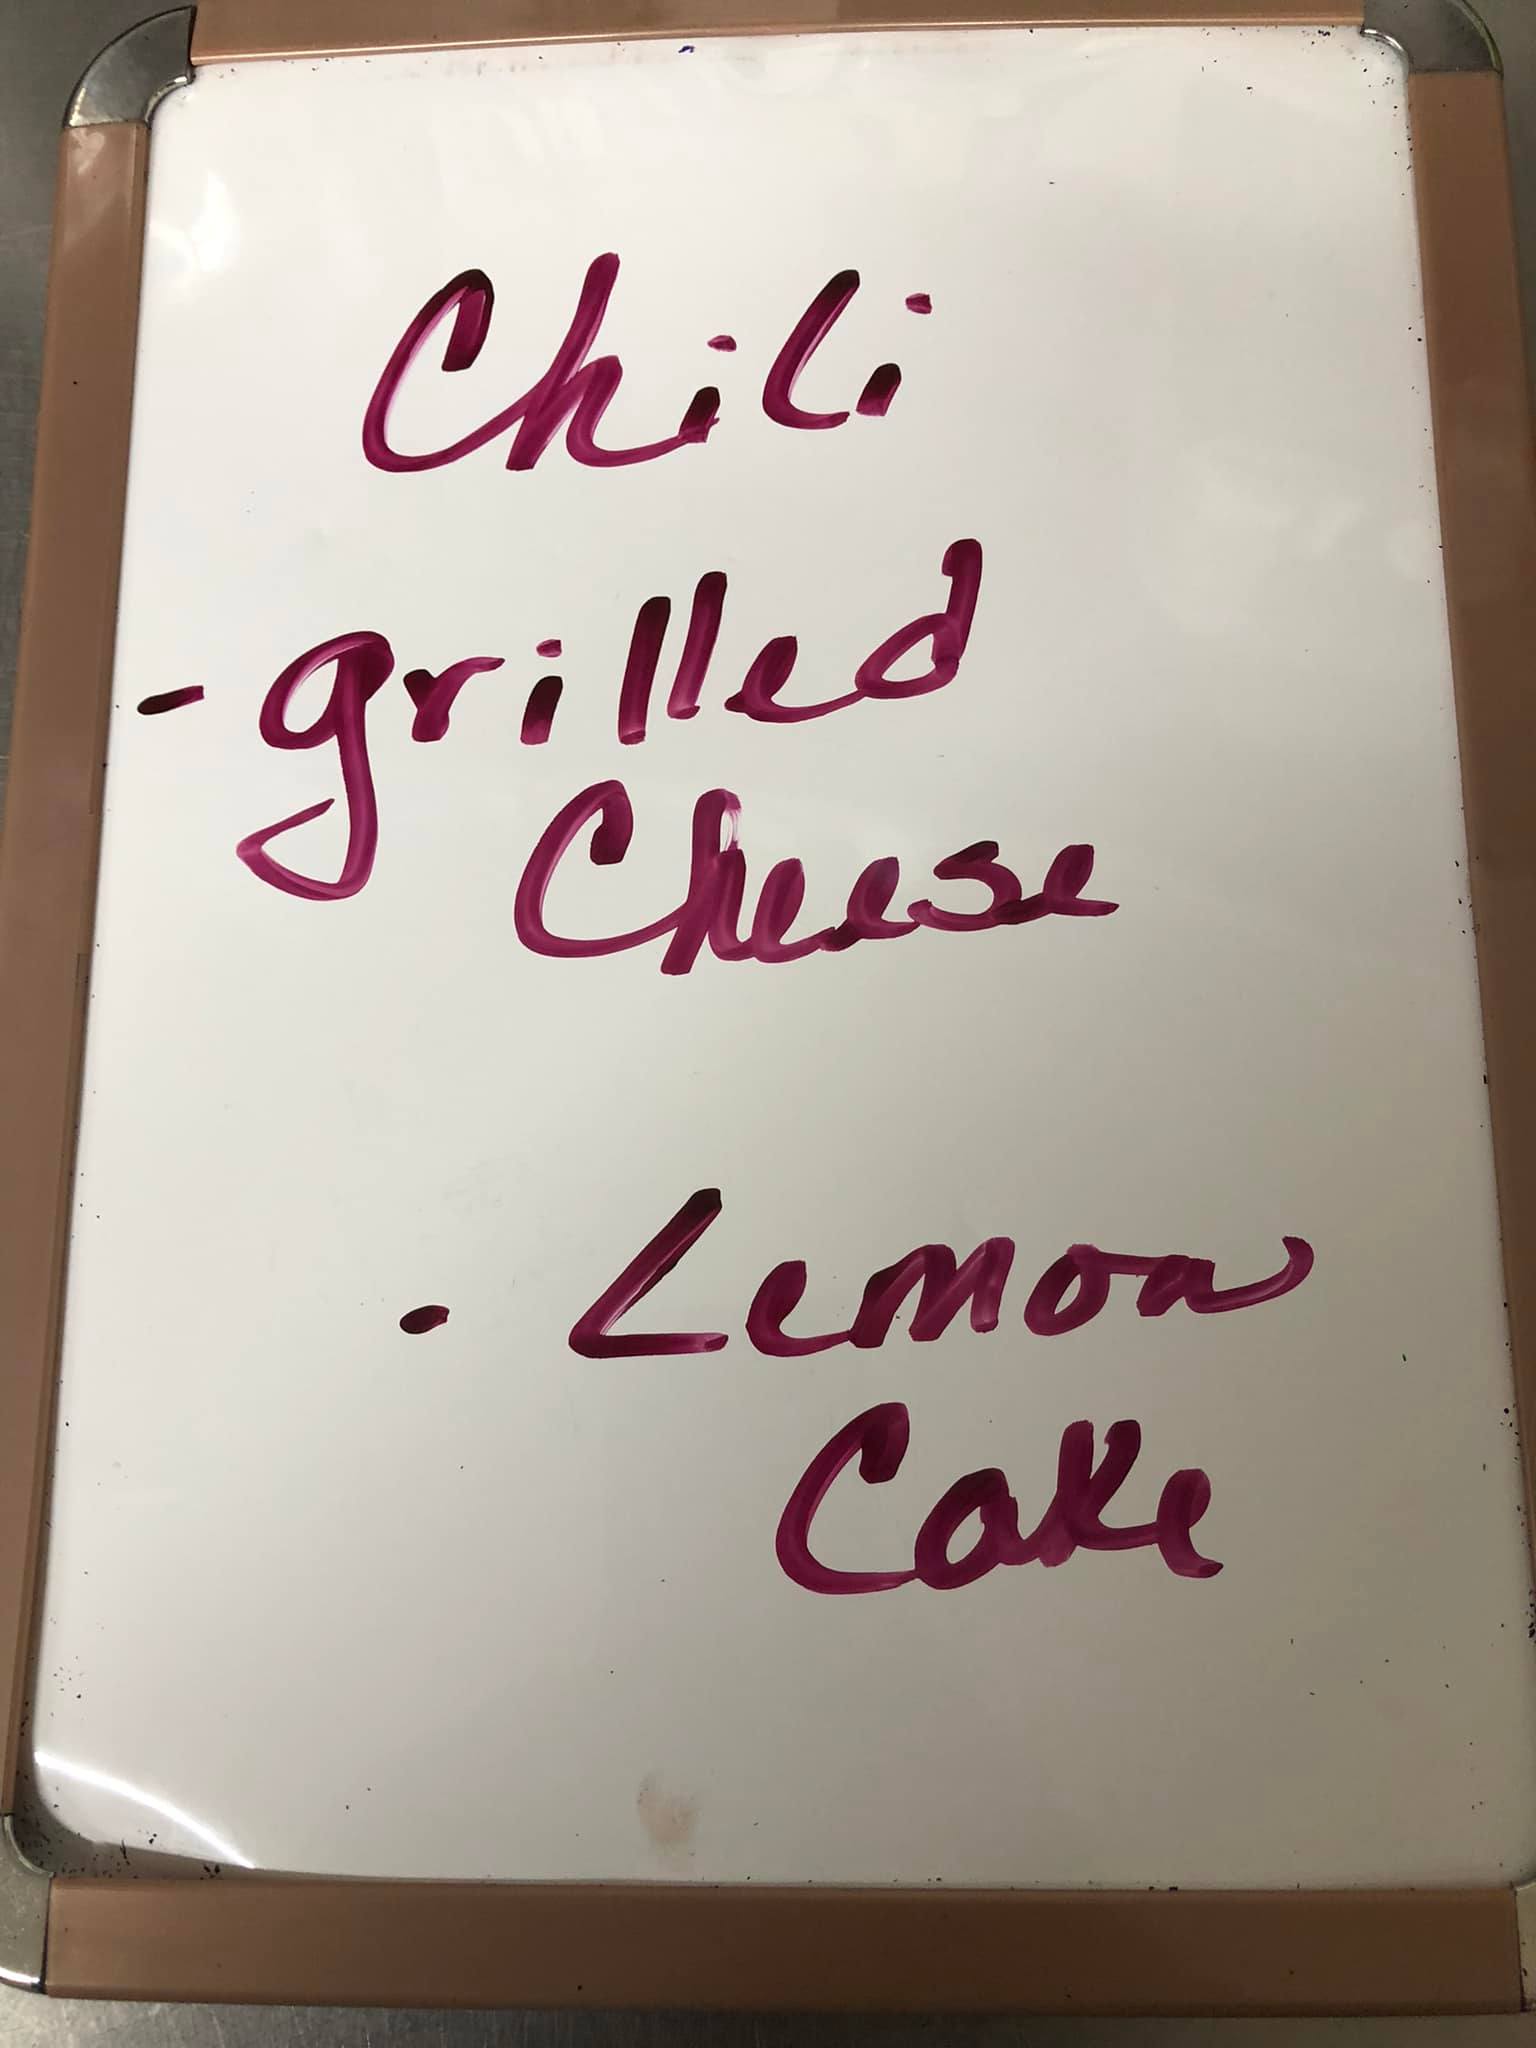 Chili
- grilled
Cheese
- Lemon
Cake